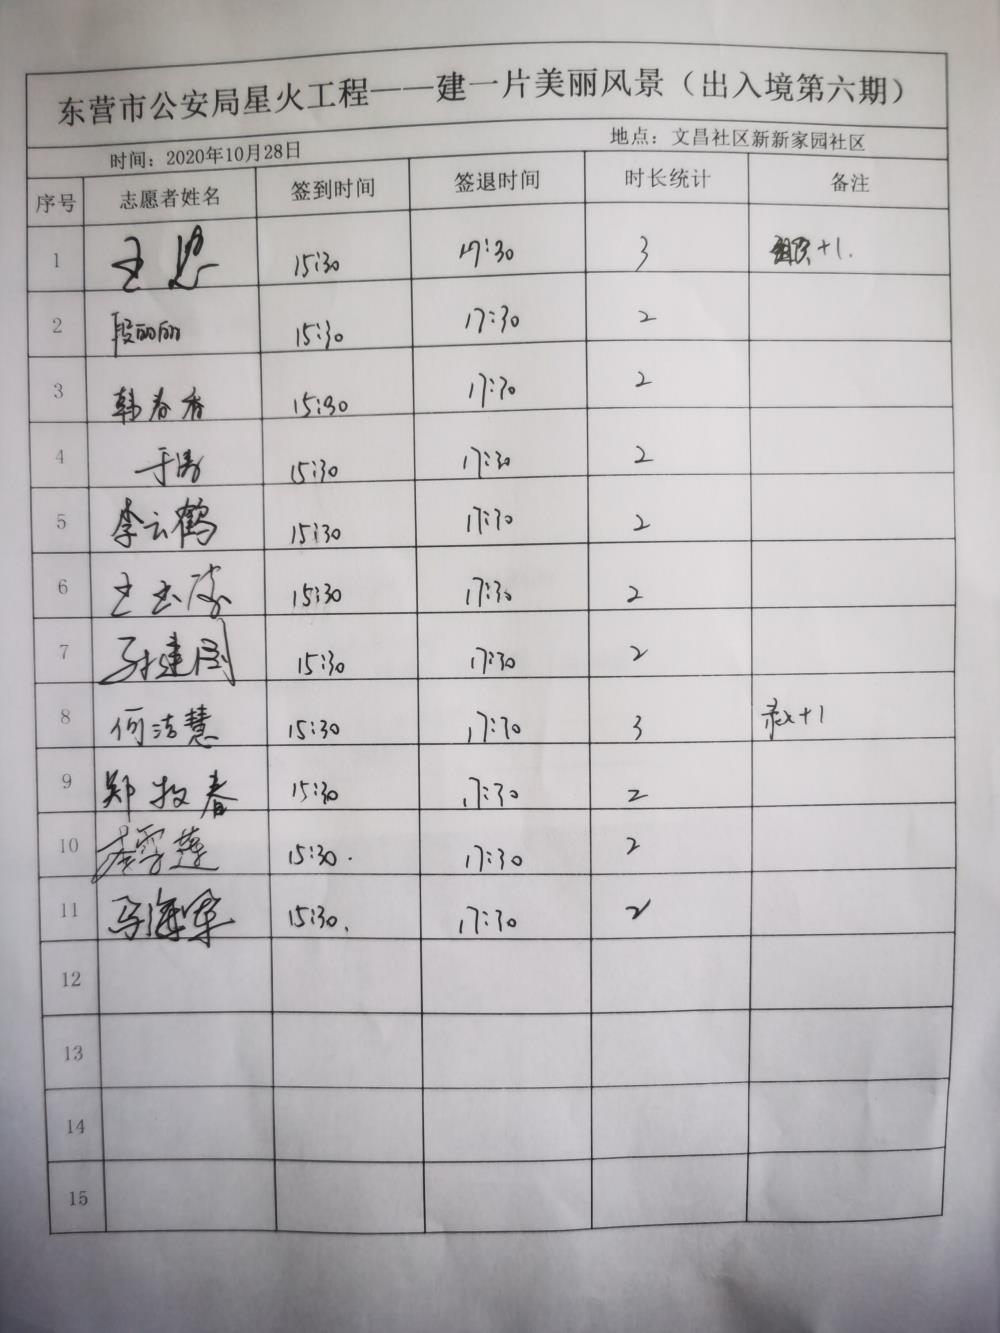 东营市公安局星火工程——建一片美丽风景（出入境第六期）
时间：2020年10月28日 地点：文昌社区新新家园社区
序号 志愿者姓名 签到时间 签退时间 时长统计 备注
1 王 15:30 17:30 3 +1.
2 段丽丽 15:30 17:30 2
3 韩春香 15:30 17:30 2
4 于涛 15:30 17:30 2
5 李云鹤 15:30 17:30 2
6 王玉 15:30 17:30 2
7 孙建国 15:30 17:30 2
8 何洁慧 15:30 17:30 3 录入+1
9 郑牧春 15:30 17:30 2
10 雪莲 15:30. 17:30 2
11 马海军 15:30. 17:30 2
12
13
14
15